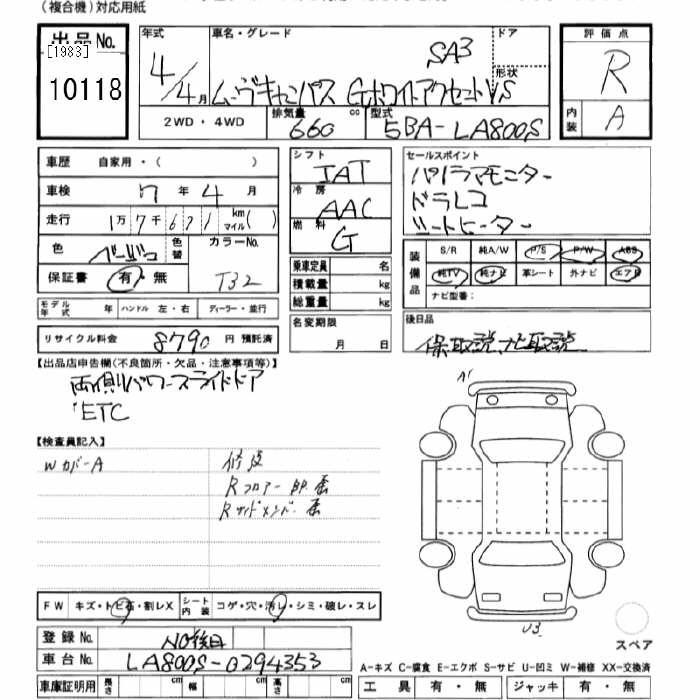 (複合機)対応用紙
出品No.
[1983]
10118
年式 車名・グレード ドア
SA3
4/4月 ムーヴキャンバス Gホワイトアクセント VS 形状
2WD・4WD 排気量 660 cc 型式 5BA-LA800S
評価点
R
内装 A
車歴 自家用・( )
車検 7年4月
走行 1万7千671 km マイル( )
色 色替 カラーNo.
T32
保証書 有・無
モデル年式 年 ハンドル 左・右 ディーラー・並行
リサイクル料金 8790 円 預託済
シフト IAT
冷房 AAC
燃料 G
乗車定員 名
積載量 kg
総重量 kg
名変期限
月 日
セールスポイント
パノラマモニター
ドラレコ
シートヒーター
装備品 S/R 純A/W P/S P/W ABS
純TV 純ナビ 革シート 外ナビ エアB
ナビ型番:
後日品
保取説、ナビ取説
【出品店申告欄(不良箇所・欠品・注意事項等)】
両側パワースライドドア
ETC
【検査員記入】
Wカバー A
修復
Rフロアー
Rサイドメンバー
A1
U3
スペア
FW キズ・トビ石・割レX シート内装 コゲ・穴・汚レ・シミ・破レ・スレ
登録No. NO後日
車台No. LA800S-0294353
車庫証明用 長さ cm 幅 cm 高さ cm
A-キズ C-腐食 E-エクボ S-サビ U-凹ミ W-補修 XX-交換済
工具 有・無 ジャッキ 有・無